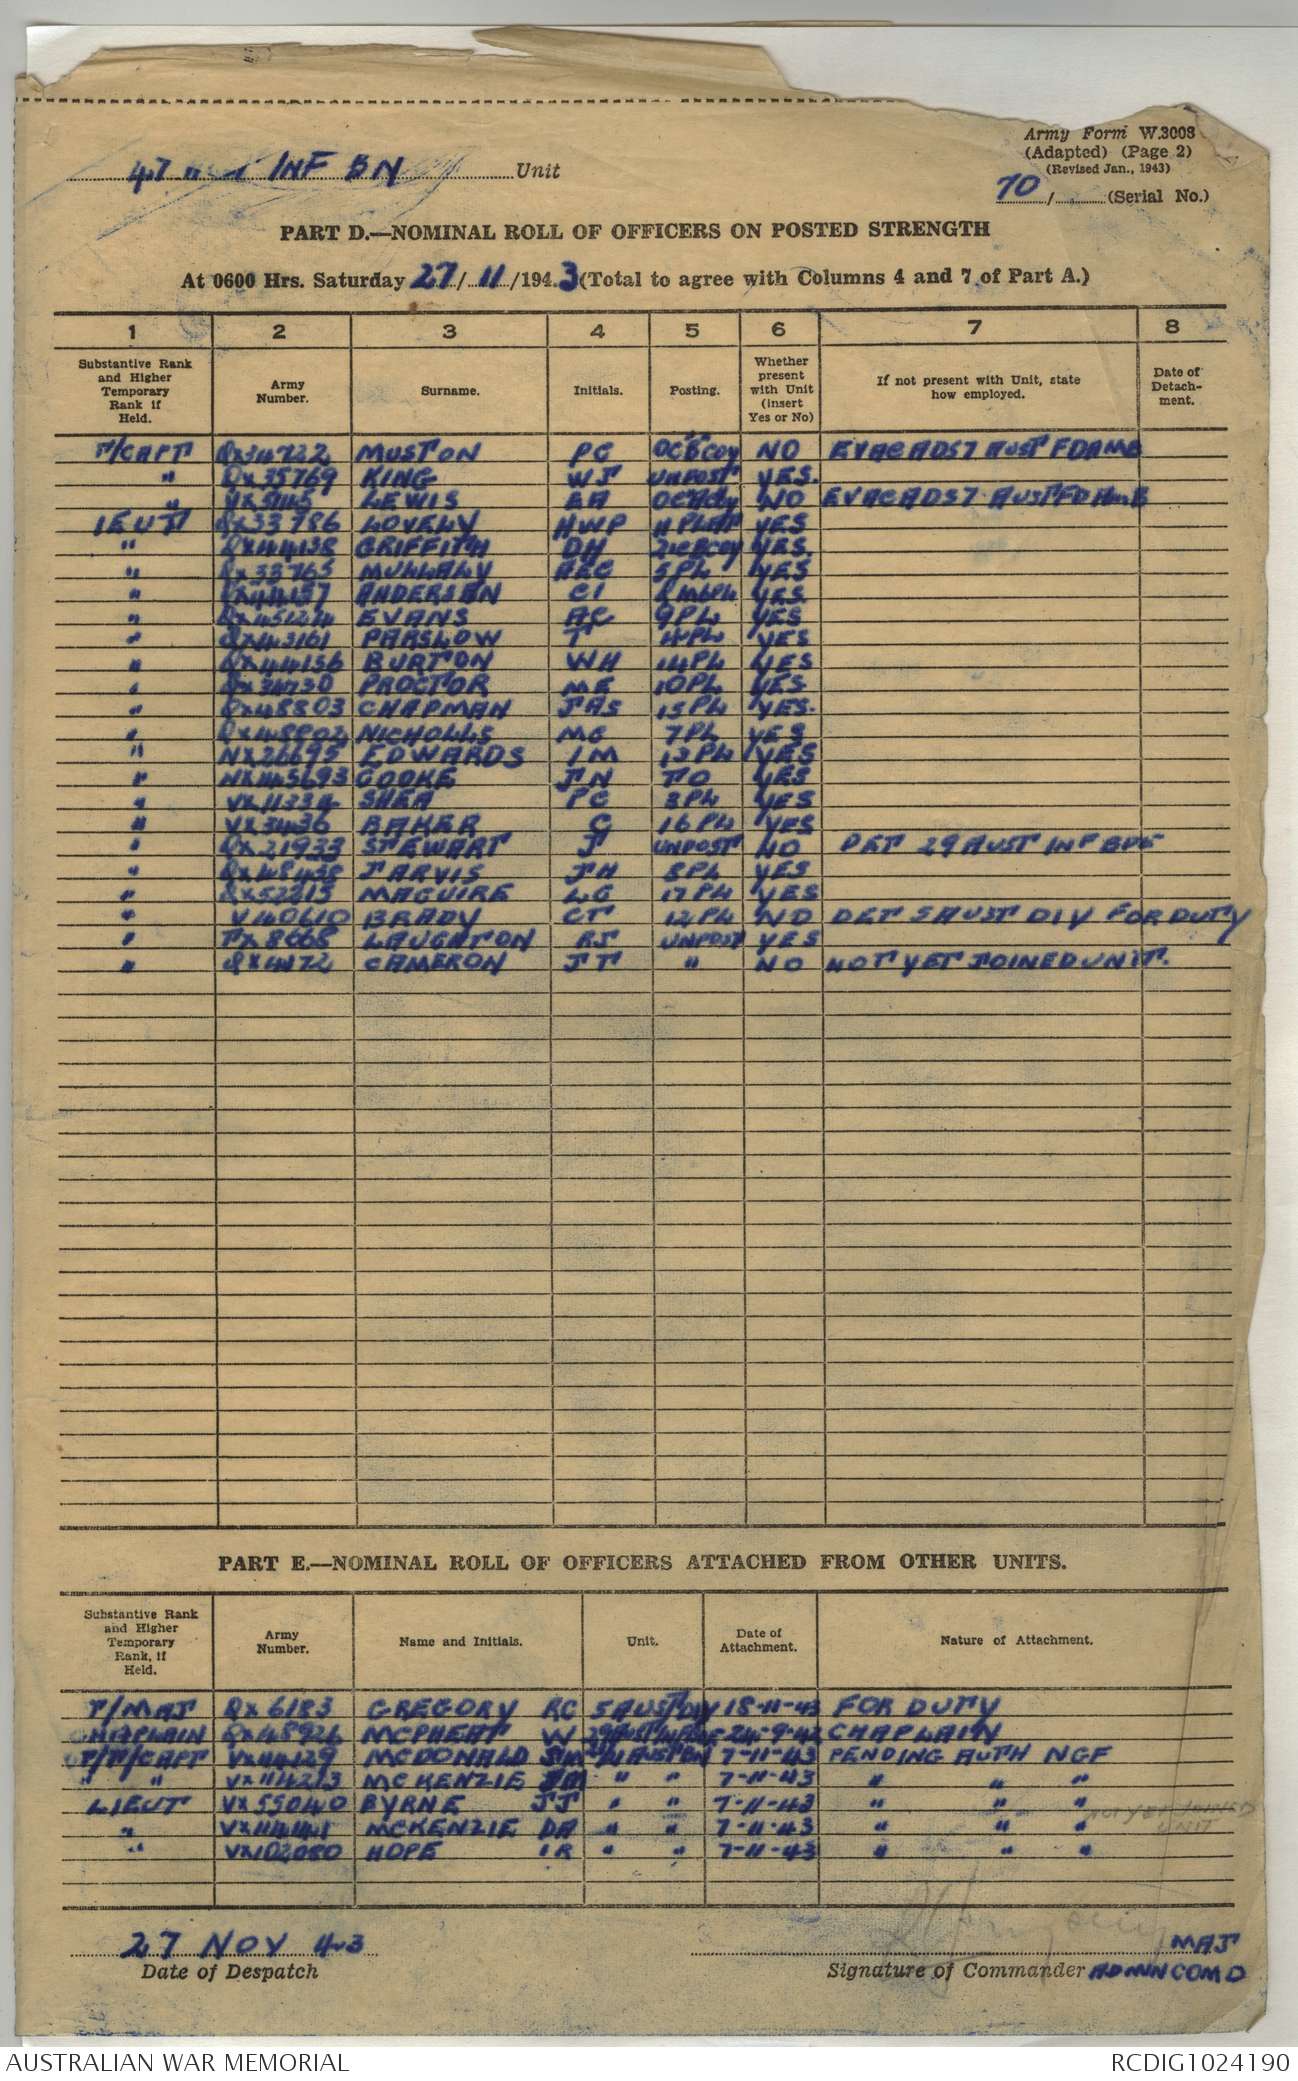 Army Form W.3008
(Adapted) (Page 2)
(Revised Jan., 1943)
47 INF BN Unit
70/ (Serial No.)
PART D.—NOMINAL ROLL OF OFFICERS ON POSTED STRENGTH
At 0600 Hrs. Saturday 27/11/1943 (Total to agree with Columns 4 and 7 of Part A.)
1 2 3 4 5 6 7 8
Substantive Rank and Higher Temporary Rank if Held. Army Number. Surname. Initials. Posting. Whether present with Unit (insert Yes or No) If not present with Unit, state how employed. Date of Detachment.
T/CAPT QX34722 MUSTON PC OC B COY NO EVAC ADS 7 AUST FD AMB
" QX35769 KING WJ UNPOST YES.
" VX5145 LEWIS EA NO EVAC ADS 7 AUST FD AMB
LIEUT QX33786 LOVELY HWP 11 PLAT YES
" QX44138 GRIFFITH DH 2IC B COY YES.
" QX33765 MULLALY AEC 5PL YES
" QX44137 ANDERSON CI YES
" QX45224 EVANS AC 9PL YES
" QX43161 PARSLOW T 4PL YES
" QX44136 BURTON WH 14PL YES
" QX34730 PROCTOR ME 10PL YES
" QX48803 CHAPMAN JAS 15PL YES.
" QX48802 NICHOLLS MG 7PL YES
" NX26695 EDWARDS IM 13PL YES
" NX145693 COOKE JN TO YES
" VX11334 SHEA PC 3PL YES
" VX3436 BAKER C 16PL YES
" QX21933 STEWART J UNPOST NO DET 29 AUST INF BDE
" QX48438 JARVIS JH 8PL YES
" QX52213 MAGUIRE LG 17PL YES
" V40610 BRADY CT 12PL NO DET 5 AUST DIV FOR DUTY
" TX8668 LAUGHTON RJ UNPOST YES
" QX4172 CAMERON JT " NO NOT YET JOINED UNIT.
PART E.—NOMINAL ROLL OF OFFICERS ATTACHED FROM OTHER UNITS.
Substantive Rank and Higher Temporary Rank, if Held. Army Number. Name and Initials. Unit. Date of Attachment. Nature of Attachment.
T/MAJ QX6183 GREGORY RC 5 AUST DIV 18-11-43 FOR DUTY
CHAPLAIN QX48926 MCPHEAT W 24-9-42 CHAPLAIN
T/CAPT VX44129 MCDONALD JM AUST BN 7-11-43 PENDING AUTH NGF
" " VX114213 MCKENZIE " " 7-11-43 " " "
LIEUT VX55040 BYRNE JJ " " 7-11-43 " " "
" VX114441 MCKENZIE DA " " 7-11-43 " " "
NOT YET JOINED UNIT
" VX102080 HOPE IR " " 7-11-43 " " "
27 NOV 43
Date of Despatch
MAJ
Signature of Commander ADMIN COMD
AUSTRALIAN WAR MEMORIAL RCDIG1024190